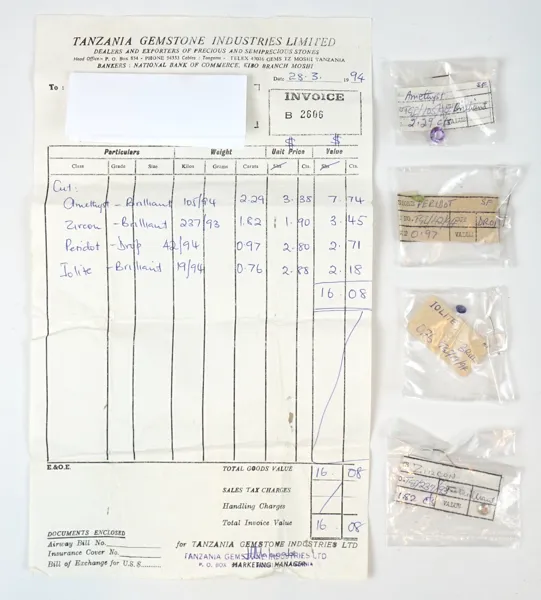 TANZANIA GEMSTONE INDUSTRIES LIMITED
DEALERS AND EXPORTERS OF PRECIOUS AND SEMIPRECIOUS STONES
Head Office: P. O. Box 534 • PHONE 56333 Cables: Tangem : TELEX 43036 GEMS TZ MOSHI TANZANIA
BANKERS: NATIONAL BANK OF COMMERCE, KIBO BRANCH MOSHI
Date 28.3. 1994
To:
INVOICE
B 2606
$ $
Particulars Weight Unit Price Value
Class Grade Size Kilos Grams Carats Shs Cts. Shs Cts.
Cut:
Amethyst - Brilliant 105/94 2.29 3.38 7.74
Zircon - Brilliant 237/93 1.82 1.90 3.45
Peridot - Drop 42/94 0.97 2.80 2.71
Iolite - Brilliant 19/94 0.76 2.88 2.18
16.08
E.&O.E. TOTAL GOODS VALUE 16 08
SALES TAX CHARGES
Handling Charges
Total Invoice Value 16 08
DOCUMENTS ENCLOSED
Airway Bill No.
Insurance Cover No.
Bill of Exchange for U.S.S.
for TANZANIA GEMSTONE INDUSTRIES LTD
TANZANIA GEMSTONE INDUSTRIES LTD
P. O. BOX
MARKETING MANAGER
Amethyst SF
Brilliant
2.29 cts
PERIDOT SF
DROP
0.97
IOLITE
ZIRCON